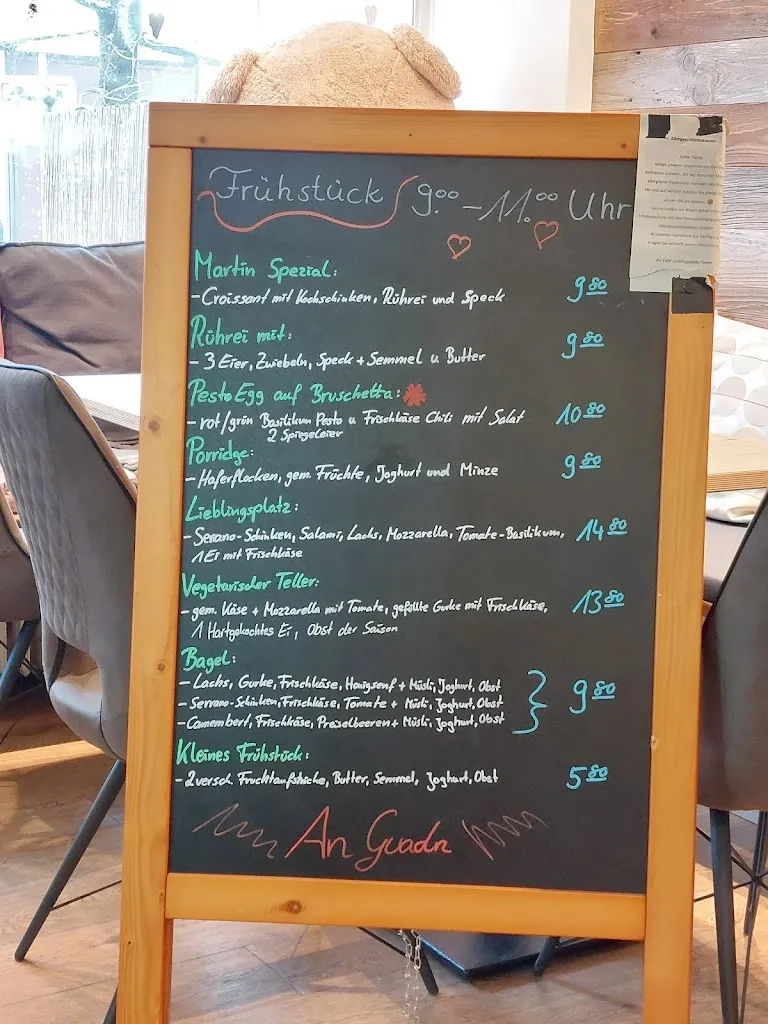 Frühstück 9.00 - 11.00 Uhr
Martin Spezial:
- Croissant mit Kochschinken, Rührei und Speck 9 80
Rührei mit:
- 3 Eier, Zwiebeln, Speck + Semmel u Butter 9 80
Pesto Egg auf Bruschetta:
- rot/grün Basilikum Pesto u Frischkäse Chili mit Salat 10 80
2 Spiegeleier
Porridge:
- Haferflocken, gem. Früchte, Joghurt und Minze 9 80
Lieblingsplatz:
- Serrano-Schinken, Salami, Lachs, Mozzarella, Tomate-Basilikum, 14 80
1 Ei mit Frischkäse
Vegetarischer Teller:
- gem. Käse + Mozzarella mit Tomate, gefüllte Gurke mit Frischkäse, 13 80
1 Hartgekochtes Ei, Obst der Saison
Bagel:
- Lachs, Gurke, Frischkäse, Honigsenf + Müsli, Joghurt, Obst
- Serrano-Schinken, Frischkäse, Tomate + Müsli, Joghurt, Obst 9 80
- Camembert, Frischkäse, Preiselbeeren + Müsli, Joghurt, Obst
Kleines Frühstück:
- 2 versch. Fruchtaufstriche, Butter, Semmel, Joghurt, Obst 5 80
An Guadn